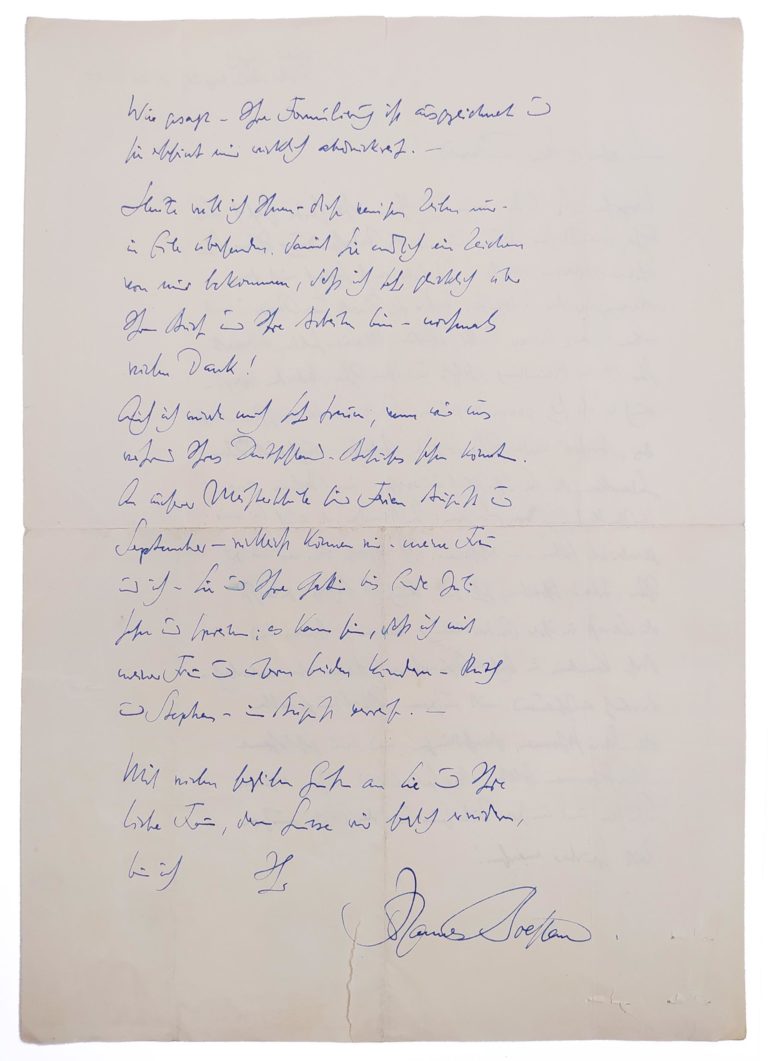 Wie gesagt – Ihre Formulierung ist ausgezeichnet und
sie scheint mir wirklich
Heute will ich Ihnen – diese wenigen Zeilen nur –
in Eile übersenden, damit Sie endlich ein Zeichen
von mir bekommen, daß ich sehr glücklich über
Ihren Brief und Ihre Arbeiten bin – nochmals
vielen Dank!
Auch ich würde mich sehr freuen, wenn wir uns
während Ihres Deutschland-Besuches sehen könnten.
An unserer Musikhochschule sind Ferien August und
September – vielleicht können wir – meine Frau
und ich – Sie und Ihre Gattin bis Ende Juli
sehen und sprechen; es kann sein, daß ich mit
meiner Frau und unseren beiden Kindern –
und Stephan – im August verreise. –
Mit vielen herzlichen Grüßen an Sie und Ihre
liebe Frau, deren Grüsse wir herzlich erwidern,
bin ich Ihr